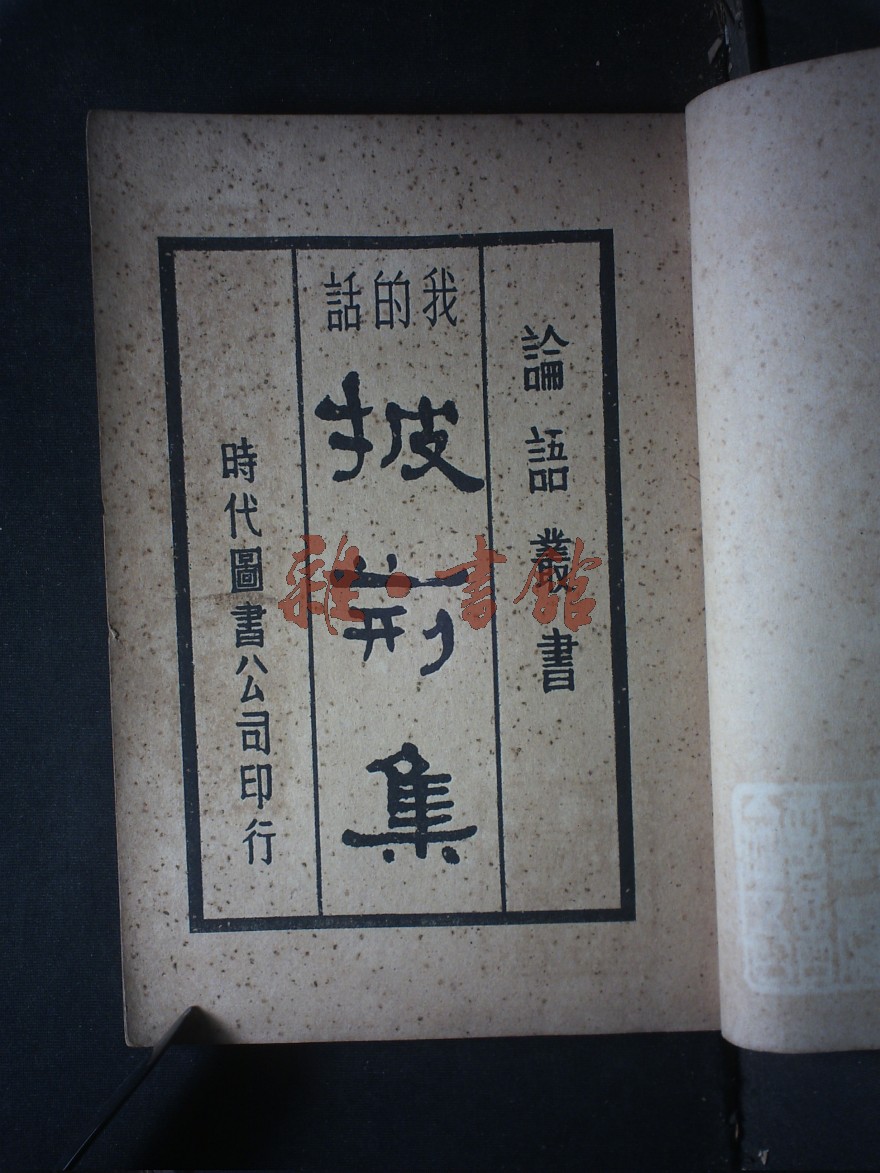 論語叢書
我的話
披荊集
時代圖書公司印行
雅·書館